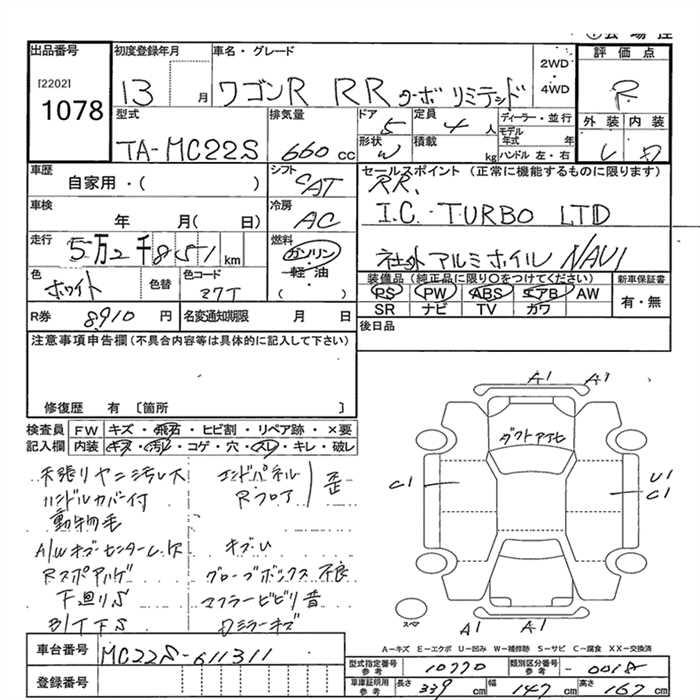 出品番号
[2202]
1078
初度登録年月
13 月
車名・グレード
ワゴンR RR ターボ リミテッド
2WD
・
4WD
評価点
R
外装 内装
D
型式
TA-MC22S
排気量
660 cc
ドア 5
形状 W
定員 4 人
積載 kg
ディーラー・並行
モデル年式 年
ハンドル 左・右
車歴
自家用・( )
シフト
車検
年 月( 日)
冷房
AC
走行
5万2千851 km
燃料
ガソリン
・
軽・油
( )
色
ホワイト
色替
色コード
27T
R券 8,910 円
名変通知期限 月 日
セールスポイント (正常に機能するものに限ります)
RR.
I.C. TURBO LTD
社外アルミホイル NAVI
装備品 (純正品に限り○をつけてください)
PS PW ABS エアB AW
SR ナビ TV カワ
新車保証書
有・無
後日品
注意事項申告欄(不具合内容等は具体的に記入して下さい)
修復歴 有 〔箇所 〕
検査員 FW キズ・飛石・ヒビ割・リペア跡・×要
記入欄 内装 キズ・汚レ・コゲ・穴・スレ・キレ・破レ
天張りヤニ汚レス
ハンドルカバー付
動物毛
A/Wキズセンター
下廻りS
エンドパネル
Rフロア
歪
キズU
グローブボックス不良
マフラービビリ音
Dミラーキズ
A1 A1
ダクト
C1
U1
C1
スペア
A1 A1
A=キズ E=エクボ U=凹み W=補修跡 S=サビ C=腐食 XX=交換済
車台番号
MC22S-611311
登録番号
型式指定番号
参考
10770
類別区分番号
参考
車庫証明用
参考
長さ 339 cm
幅 147 cm
高さ 167 cm